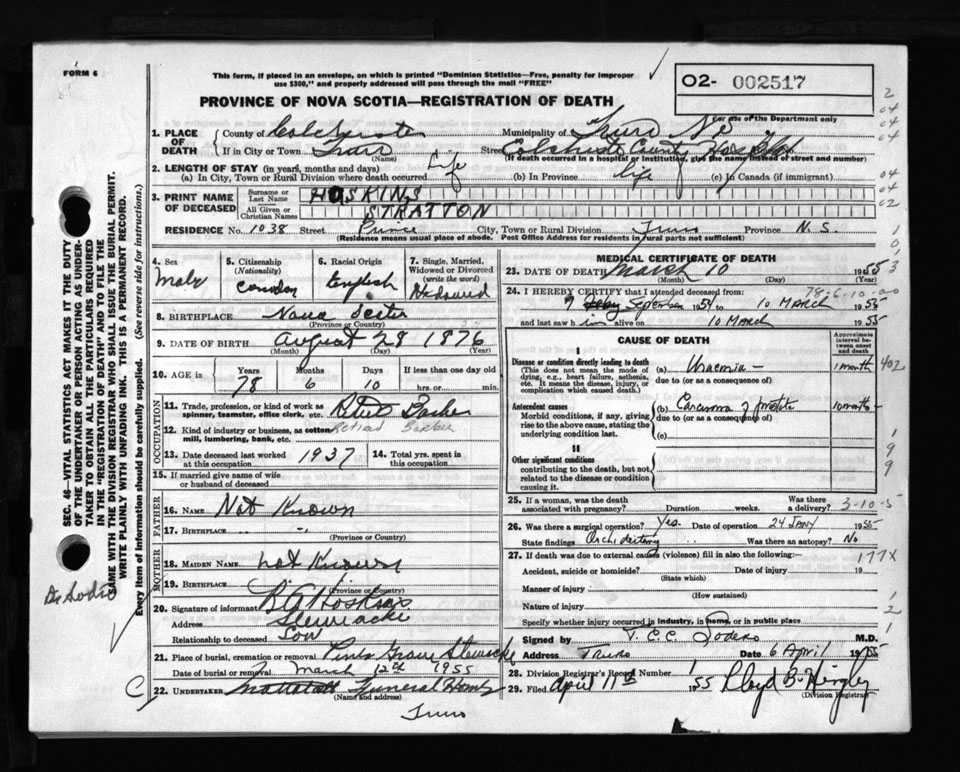 FORM 6
This form, if placed in an envelope, on which is printed "Dominion Statistics—Free, penalty for improper
use $300," and properly addressed will pass through the mail "FREE"
02- 002517
For use of the Department only
PROVINCE OF NOVA SCOTIA—REGISTRATION OF DEATH
1. PLACE OF DEATH
County of Colchester Municipality of Truro
If in City or Town Truro Street Colchester County Hospital
(Name) (If death occurred in a hospital or institution, give the name instead of street and number)
2. LENGTH OF STAY (in years, months and days)
(a) In City, Town or Rural Division where death occurred Life (b) In Province life (c) In Canada (if immigrant)
3. PRINT NAME OF DECEASED
Surname or Last Name HOSKINS
All Given or Christian Names STRATTON
RESIDENCE No. 1038 Street Prince City, Town or Rural Division Truro Province N.S.
(Residence means usual place of abode. Post Office Address for residents in rural parts not sufficient)
4. Sex Male
5. Citizenship (Nationality) Canadian
6. Racial Origin English
7. Single, Married, Widowed or Divorced (write the word) Widowed
8. BIRTHPLACE Nova Scotia
(Province or Country)
9. DATE OF BIRTH August 28 1876
(Month) (Day) (Year)
10. AGE in Years 78 Months 6 Days 10 If less than one day old
hrs. or min.
OCCUPATION
11. Trade, profession, or kind of work as spinner, teamster, office clerk, etc. Retired Barber
12. Kind of industry or business, as cotton mill, lumbering, bank, etc. Retired Barber
13. Date deceased last worked at this occupation 1937
14. Total yrs. spent in this occupation
15. If married give name of wife or husband of deceased
FATHER
16. NAME Not Known
17. BIRTHPLACE -"-
(Province or Country)
MOTHER
18. MAIDEN NAME not Known
19. BIRTHPLACE
(Province or Country)
20. Signature of informant Hoskins
Address Stewiacke
Relationship to deceased Son
21. Place of burial, cremation or removal Pine Grove Stewiacke
Date of burial or removal March 12th 1955
22. UNDERTAKER Mattatall Funeral Home
(Name and address)
Truro
MEDICAL CERTIFICATE OF DEATH
23. DATE OF DEATH March 10 1955
(Month) (Day) (Year)
78-6-10-00
24. I HEREBY CERTIFY that I attended deceased from:
9 September 1954 to 10 March 1955
and last saw him alive on 10 March 1955
CAUSE OF DEATH
Approximate interval between onset and death
I
Disease or condition directly leading to death
(This does not mean the mode of dying, e.g., heart failure, asthenia, etc. It means the disease, injury, or complication which caused death.)
(a) Uraemia - 1 month
due to (or as a consequence of)
Antecedent causes
Morbid conditions, if any, giving rise to the above cause, stating the underlying condition last.
(b) Carcinoma of prostate 10 months -
due to (or as a consequence of)
(c)
II
Other significant conditions
contributing to the death, but not related to the disease or condition causing it.
25. If a woman, was the death associated with pregnancy? Duration weeks. Was there a delivery?
3-10-5
26. Was there a surgical operation? Yes. Date of operation 24 Jany 1955
State findings Orchidectomy Was there an autopsy? No
27. If death was due to external causes (violence) fill in also the following:—
177X
Accident, suicide or homicide? Date of injury 19
(State which)
Manner of injury
(How sustained)
Nature of injury
Specify whether injury occurred in industry, in home, or in public place
Signed by T. C. C. Sodero M.D.
Address Truro Date 6 April 1955
28. Division Registrar's Record Number
29. Filed April 11th 1955 Lloyd B.
(Division Registrar)
SEC. 46—VITAL STATISTICS ACT MAKES IT THE DUTY
OF THE UNDERTAKER OR PERSON ACTING AS UNDER-
TAKER TO OBTAIN ALL THE PARTICULARS REQUIRED
IN THE "REGISTRATION OF DEATH" AND TO FILE THE
SAME WITH THE DIVISION REGISTRAR WHO SHALL ISSUE THE BURIAL PERMIT.
WRITE PLAINLY WITH UNFADING INK. THIS IS A PERMANENT RECORD.
Every item of information should be carefully supplied. (See reverse side for instructions.)
Dr Sodero